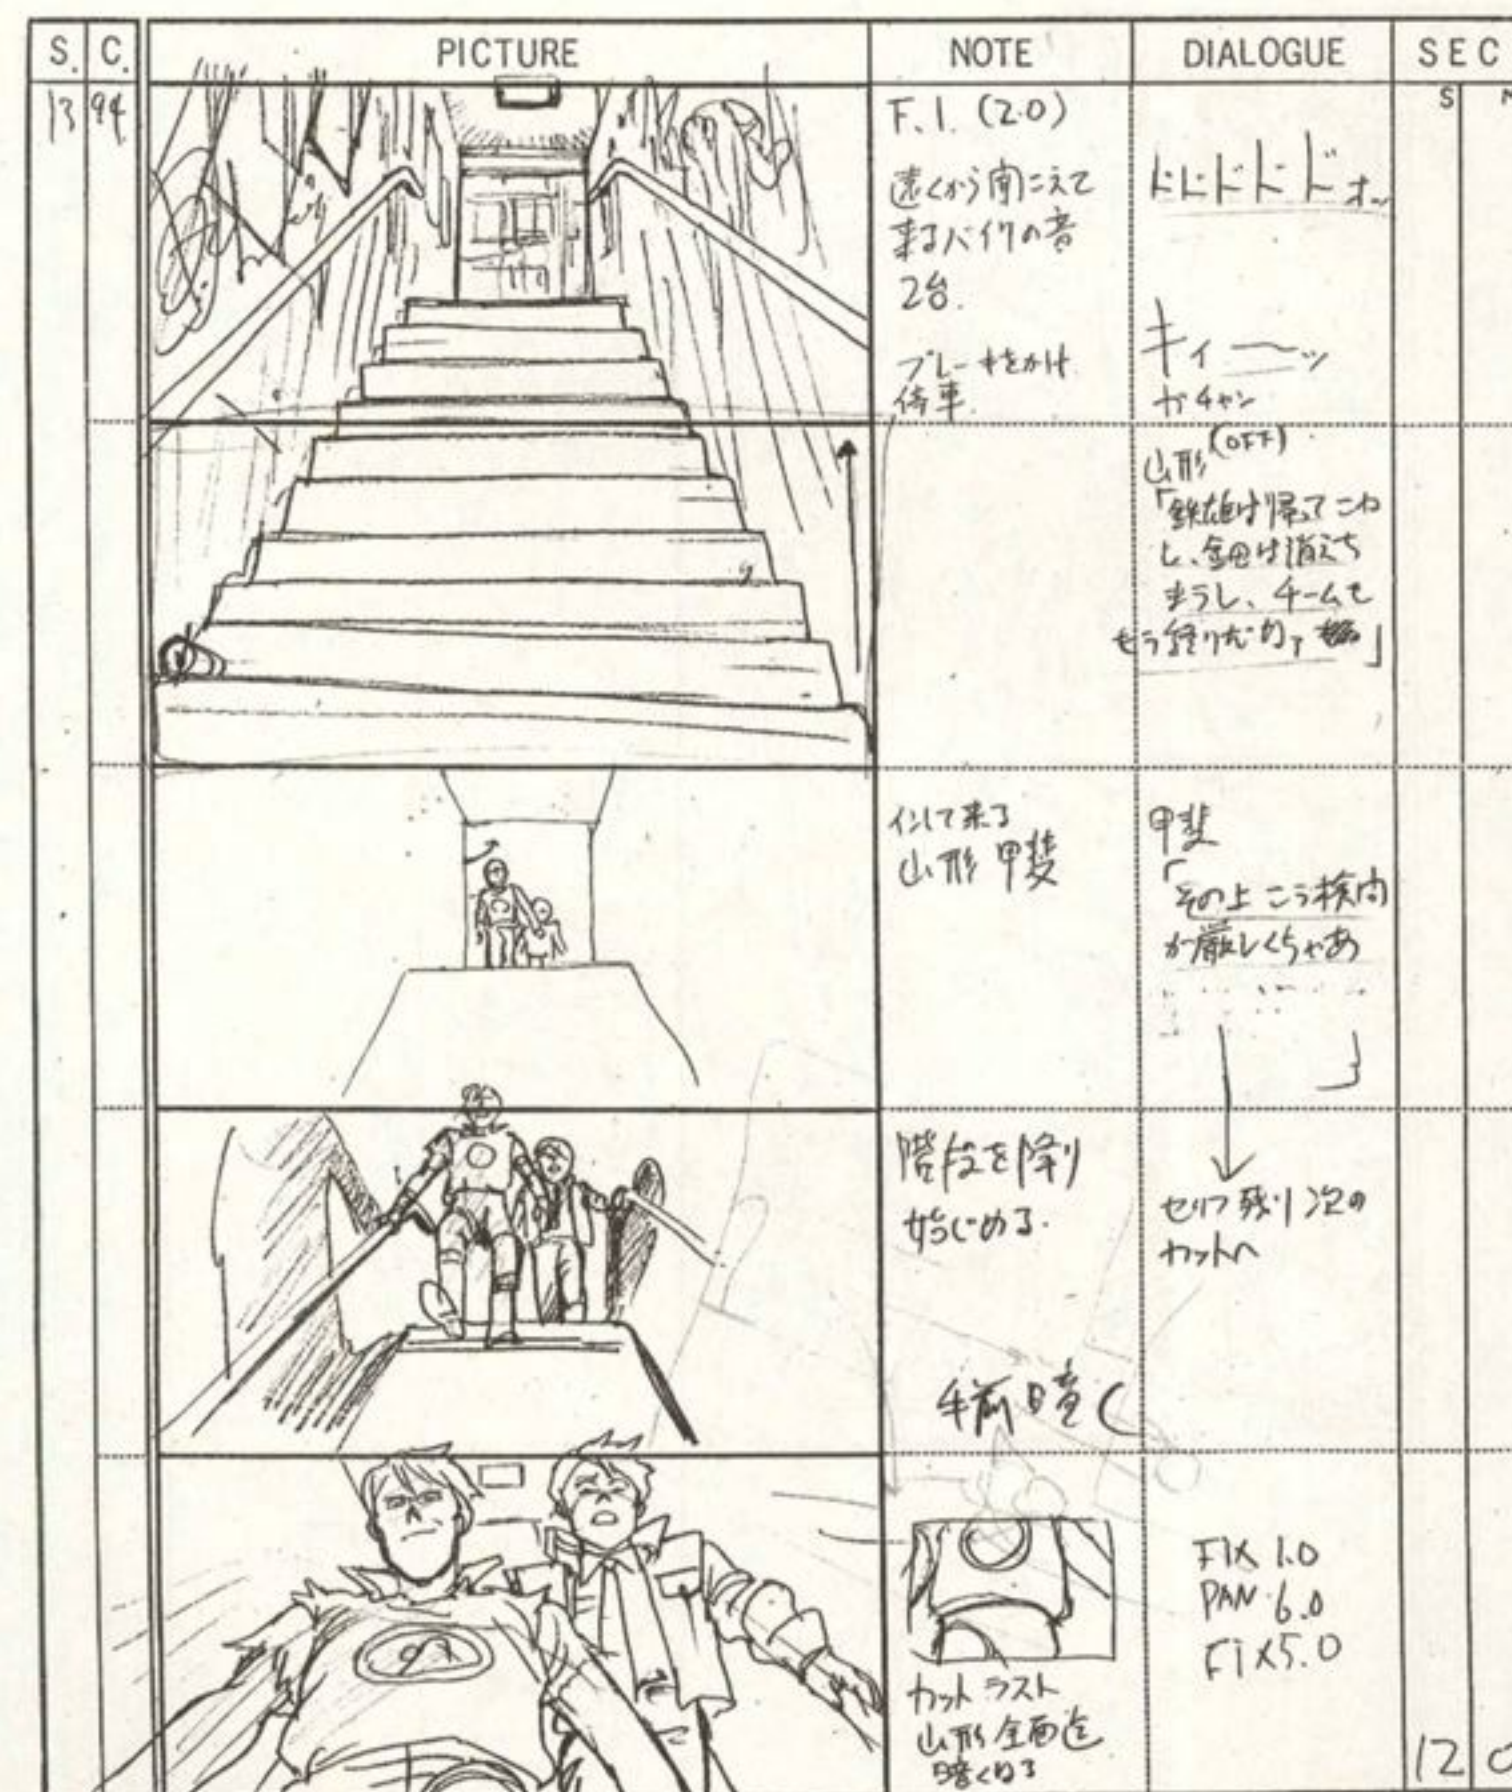 S. C. PICTURE NOTE DIALOGUE SEC
S
13 94
F.I. (2.0)
遠くから聞こえて
来るバイクの音
2台.
ブレーキをかけ
停車.
ドドドドドオッ
キィーッ
ガチャン
山形(OFF)
「鉄雄は帰ってこね
し、金田は消えち
まうし、チームも
もう終りだなァ」
インして来る
山形 甲斐
甲斐
「その上こう検問
が厳しくちゃあ
」
階段を降り
始じめる.
手前暗く
セリフ残り次の
カットへ
カットラスト
山形全面迄
暗くなる
FIX 1.0
PAN 6.0
FIX 5.0
12 0